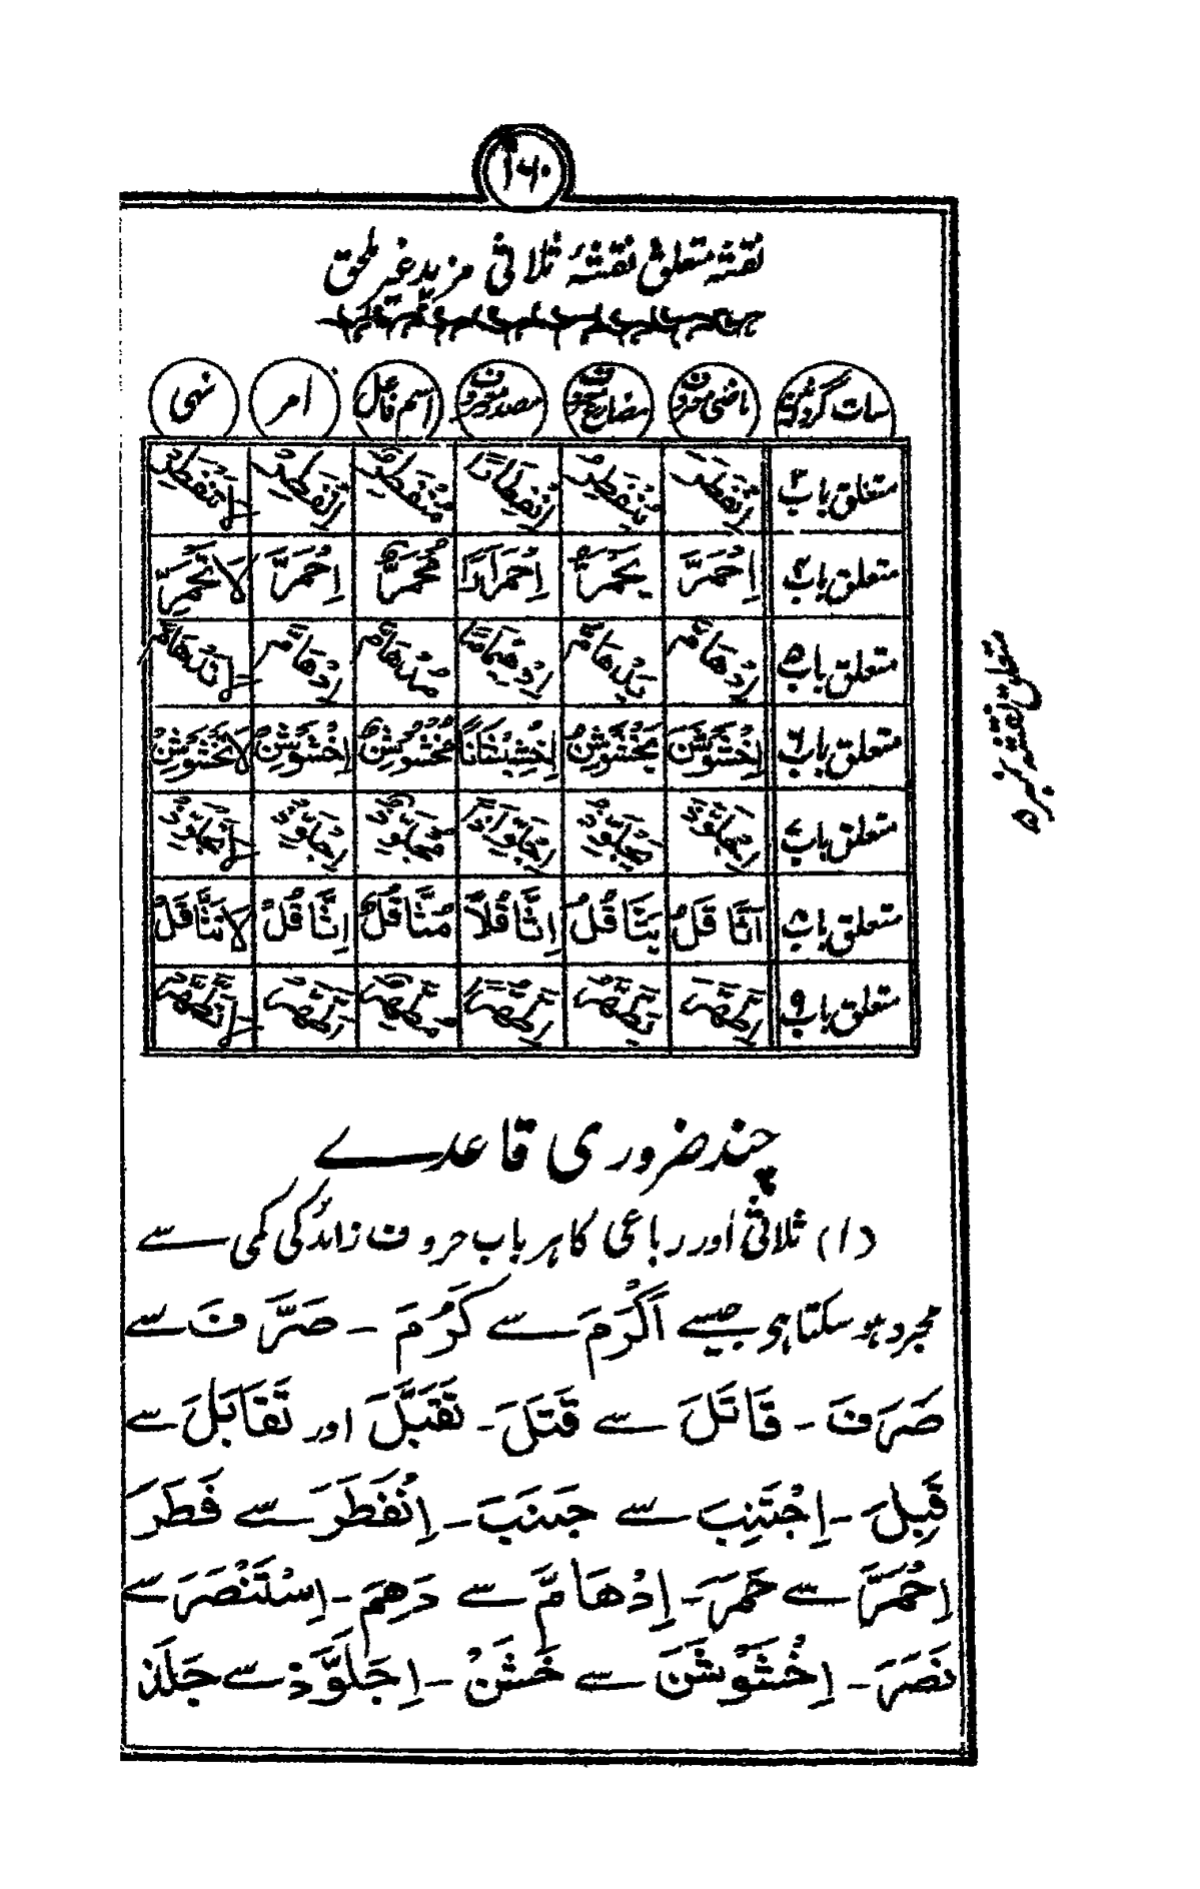 ۱۶۰
نقشہ متعلق نقشہ ثلاثی مزید غیر ملحق
سات گردانیں ماضی معروف مضارع معروف مصدر معروف اسم فاعل امر نہی
متعلق باب ۳ اِنْفَطَرَ يَنْفَطِرُ اِنْفِطَارًا مُنْفَطِرٌ اِنْفَطِرْ لَا تَنْفَطِرْ
متعلق باب ۴ اِحْمَرَّ يَحْمَرُّ اِحْمِرَارًا مُحْمَرٌّ اِحْمَرَّ لَا تَحْمَرَّ
متعلق باب ۵ اِدْهَامَّ يَدْهَامُّ اِدْهِيْمَامًا مُدْهَامٌّ اِدْهَامَّ لَا تَدْهَامَّ
متعلق باب ۶ اِخْشَوْشَنَ يَخْشَوْشِنُ اِخْشِيْشَانًا مُخْشَوْشِنٌ اِخْشَوْشِنْ لَا تَخْشَوْشِنْ
متعلق باب ۷ اِجْلَوَّذَ يَجْلَوِّذُ اِجْلِوَّاذًا مُجْلَوِّذٌ اِجْلَوِّذْ لَا تَجْلَوِّذْ
متعلق باب ۸ اِثَّاقَلَ يَثَّاقَلُ اِثَّاقُلًا مُثَّاقِلٌ اِثَّاقَلْ لَا تَثَّاقَلْ
متعلق باب ۹ اِطَّهَّرَ يَطَّهَّرُ اِطَّهُّرًا مُطَّهِّرٌ اِطَّهَّرْ لَا تَطَّهَّرْ
متعلق نقشہ نمبر ۵
چند ضروری قاعدے
(۱) ثلاثی اور رباعی کا ہر باب حروف زائد کی کمی سے
مجرد ہو سکتا ہی جیسے اَكْرَمَ سے كَرُمَ - صَرَّفَ سے
صَرَفَ - قَاتَلَ سے قَتَلَ - تَقَبَّلَ اور تَقَابَلَ سے
قَبِلَ - اِجْتَنِبَ سے جَنَبَ - اِنْفَطَرَ سے فَطَرَ
اِحْمَرَّ سے حَمَرَ - اِدْهَامَّ سے دَهِمَ - اِسْتَنْصَرَ سے
نَصَرَ - اِخْشَوْشَنَ سے خَشَنُ - اِجَلَوَّذْ سے جَلَذ